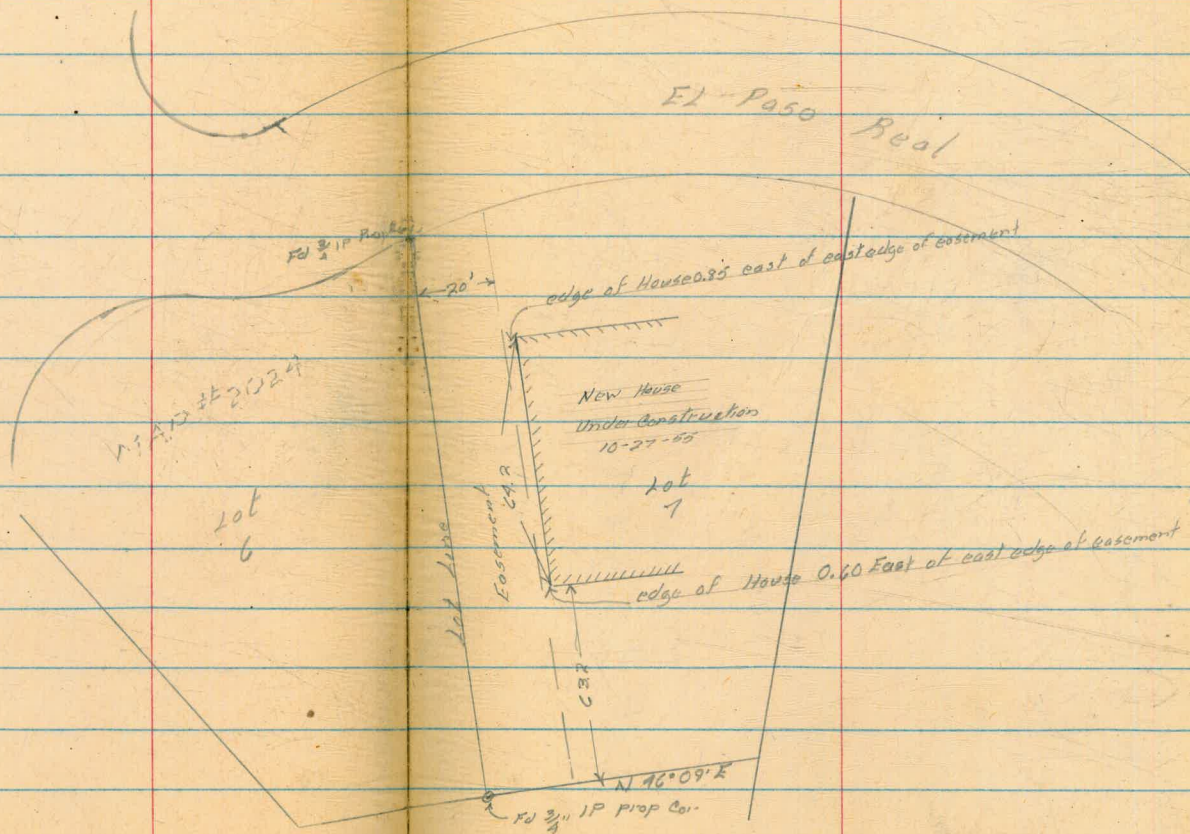 El Paso Real
Fd 3/4 IP Prop
20'
edge of House 0.85 east of east edge of easement
MAP #2024
New House
Under Construction
10-27-55
Lot
7
Lot
6
Lot Line
Easement
64.2
edge of House 0.60 East of east edge of easement
63.2
N 46°09' E
Fd 3/4" IP prop Cor.